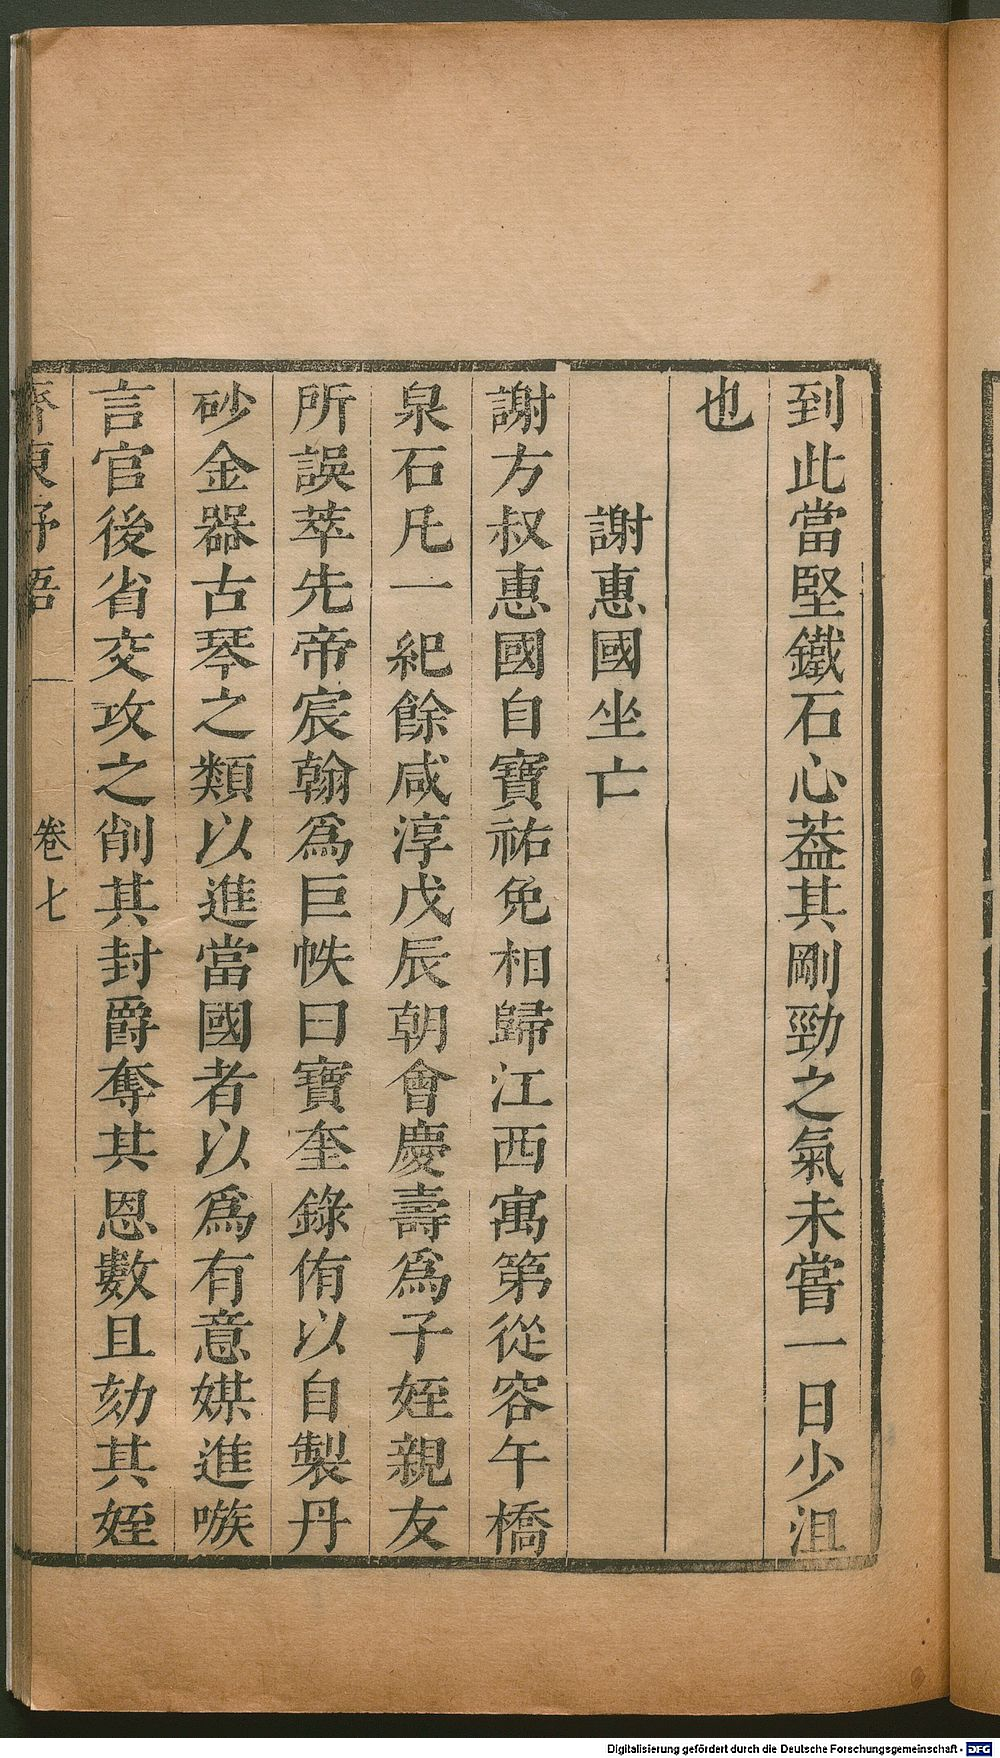 到此當堅鐵石心葢其剛勁之氣未嘗一日少沮
也
謝惠國坐亡
謝方叔惠國自寶祐免相歸江西寓第從容午橋
泉石凡一紀餘咸淳戊辰朝會慶壽爲子姪親友
所誤萃先帝宸翰爲巨帙曰寶奎錄侑以自製丹
砂金器古琴之類以進當國者以爲有意媒進嗾
言官後省交攻之削其封爵奪其恩數且劾其姪
齊東野語
卷七
Digitalisierung gefördert durch die Deutsche Forschungsgemeinschaft - DFG